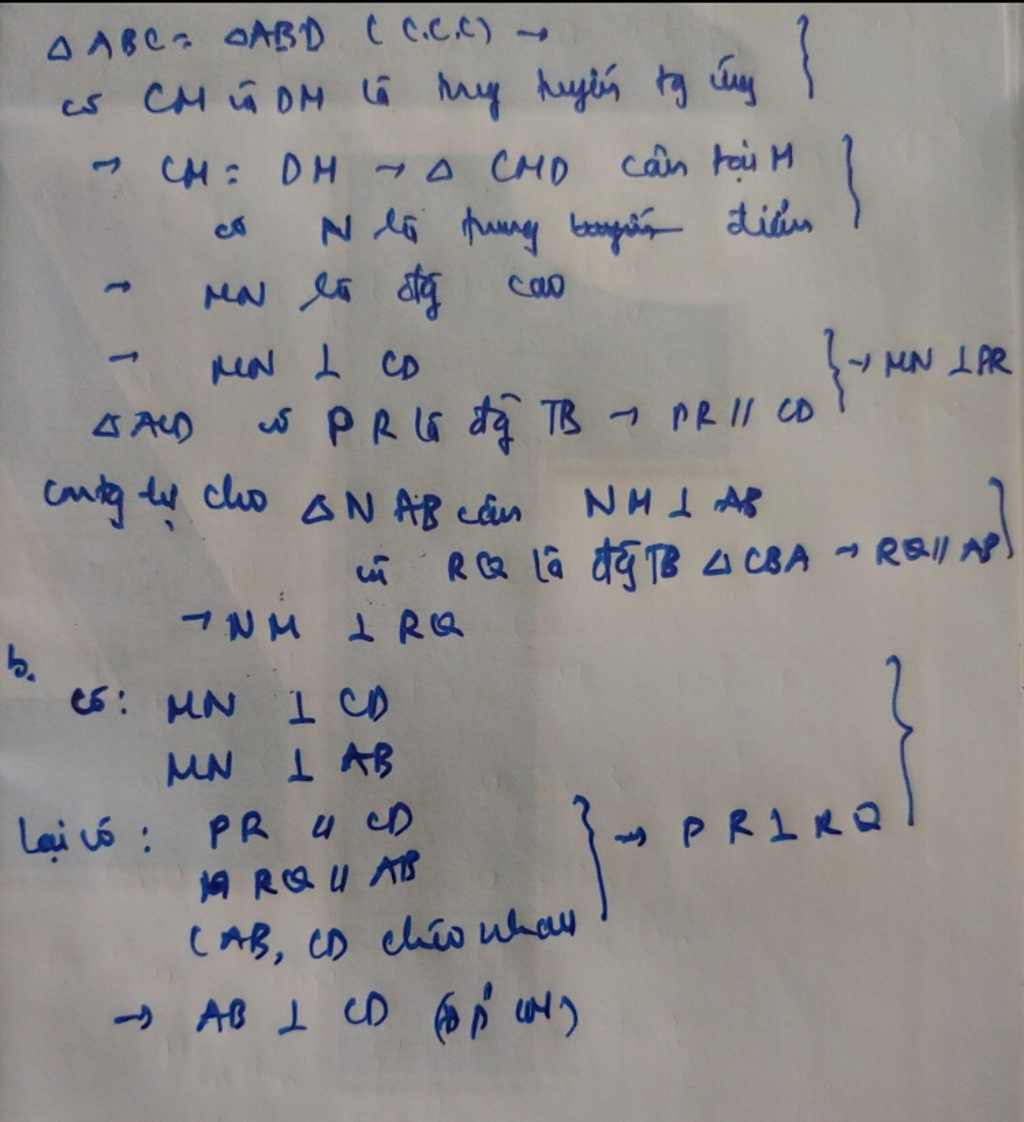 △ ABC = △ABD (C.C.C) →
có CM và DM là trung tuyến tg ứng
→ CM = DM → △ CMD cân tại M
có N là trung tuyến điểm
→ MN là đg cao
→ MN ⊥ CD
△ACD có PR là đg TB → PR // CD
→ MN ⊥ PR
tự cho △NAB cân NM ⊥ AB
và RQ là đg TB △ CBA → RQ // AB
→ NM ⊥ RQ
b.
có: MN ⊥ CD
MN ⊥ AB
Lại có: PR // CD
RQ // AB
→ PR ⊥ RQ
(AB, CD chéo nhau
→ AB ⊥ CD